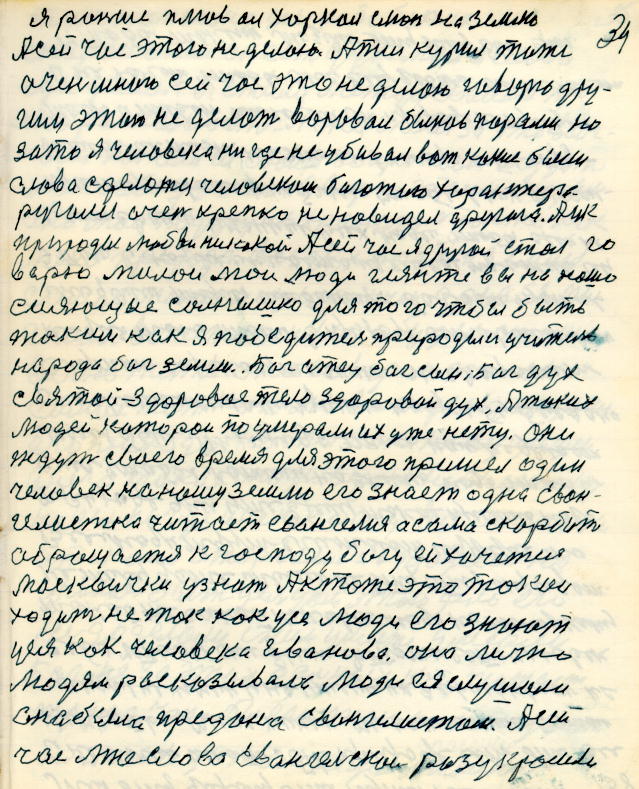 34
я раньше плювал харкал смок на землю
Асей час этого не делаю. Апил курил тоже
очен много сей час это не делаю говорю дру-
гим этого не делат воровал бывал карали но
зато я человека нигде не убивал вот какие были
слова сделоны человеком богатого характера
ругали очен крепко не новидел другога. А к
природы любви никакой Асей час я другой стал го
варю милои мои люди гляньте вы на нашо
сияющые солнышко для того чтобы быть
таким как я победител природы и учитель
народа бог земли. Бог отец бог сын, Бог дух
святой – здоровое тело здоровой дух. А таких
людей которои по умерали их уже нету. они
ждут своего время для этого пришел один
человек на нашу землю его знает одна еван-
гелистка читает евангелия а сама скорбит
обращается к господу богу ей хочетця
москвички узнат А ктоже это токои
ходит не так как усе люди его знают
уся как человека Иванова. она лично
людям расказывала люди ея слушали
она была предана евангелистом. А сей
час мне слова евангельскои разукрошели